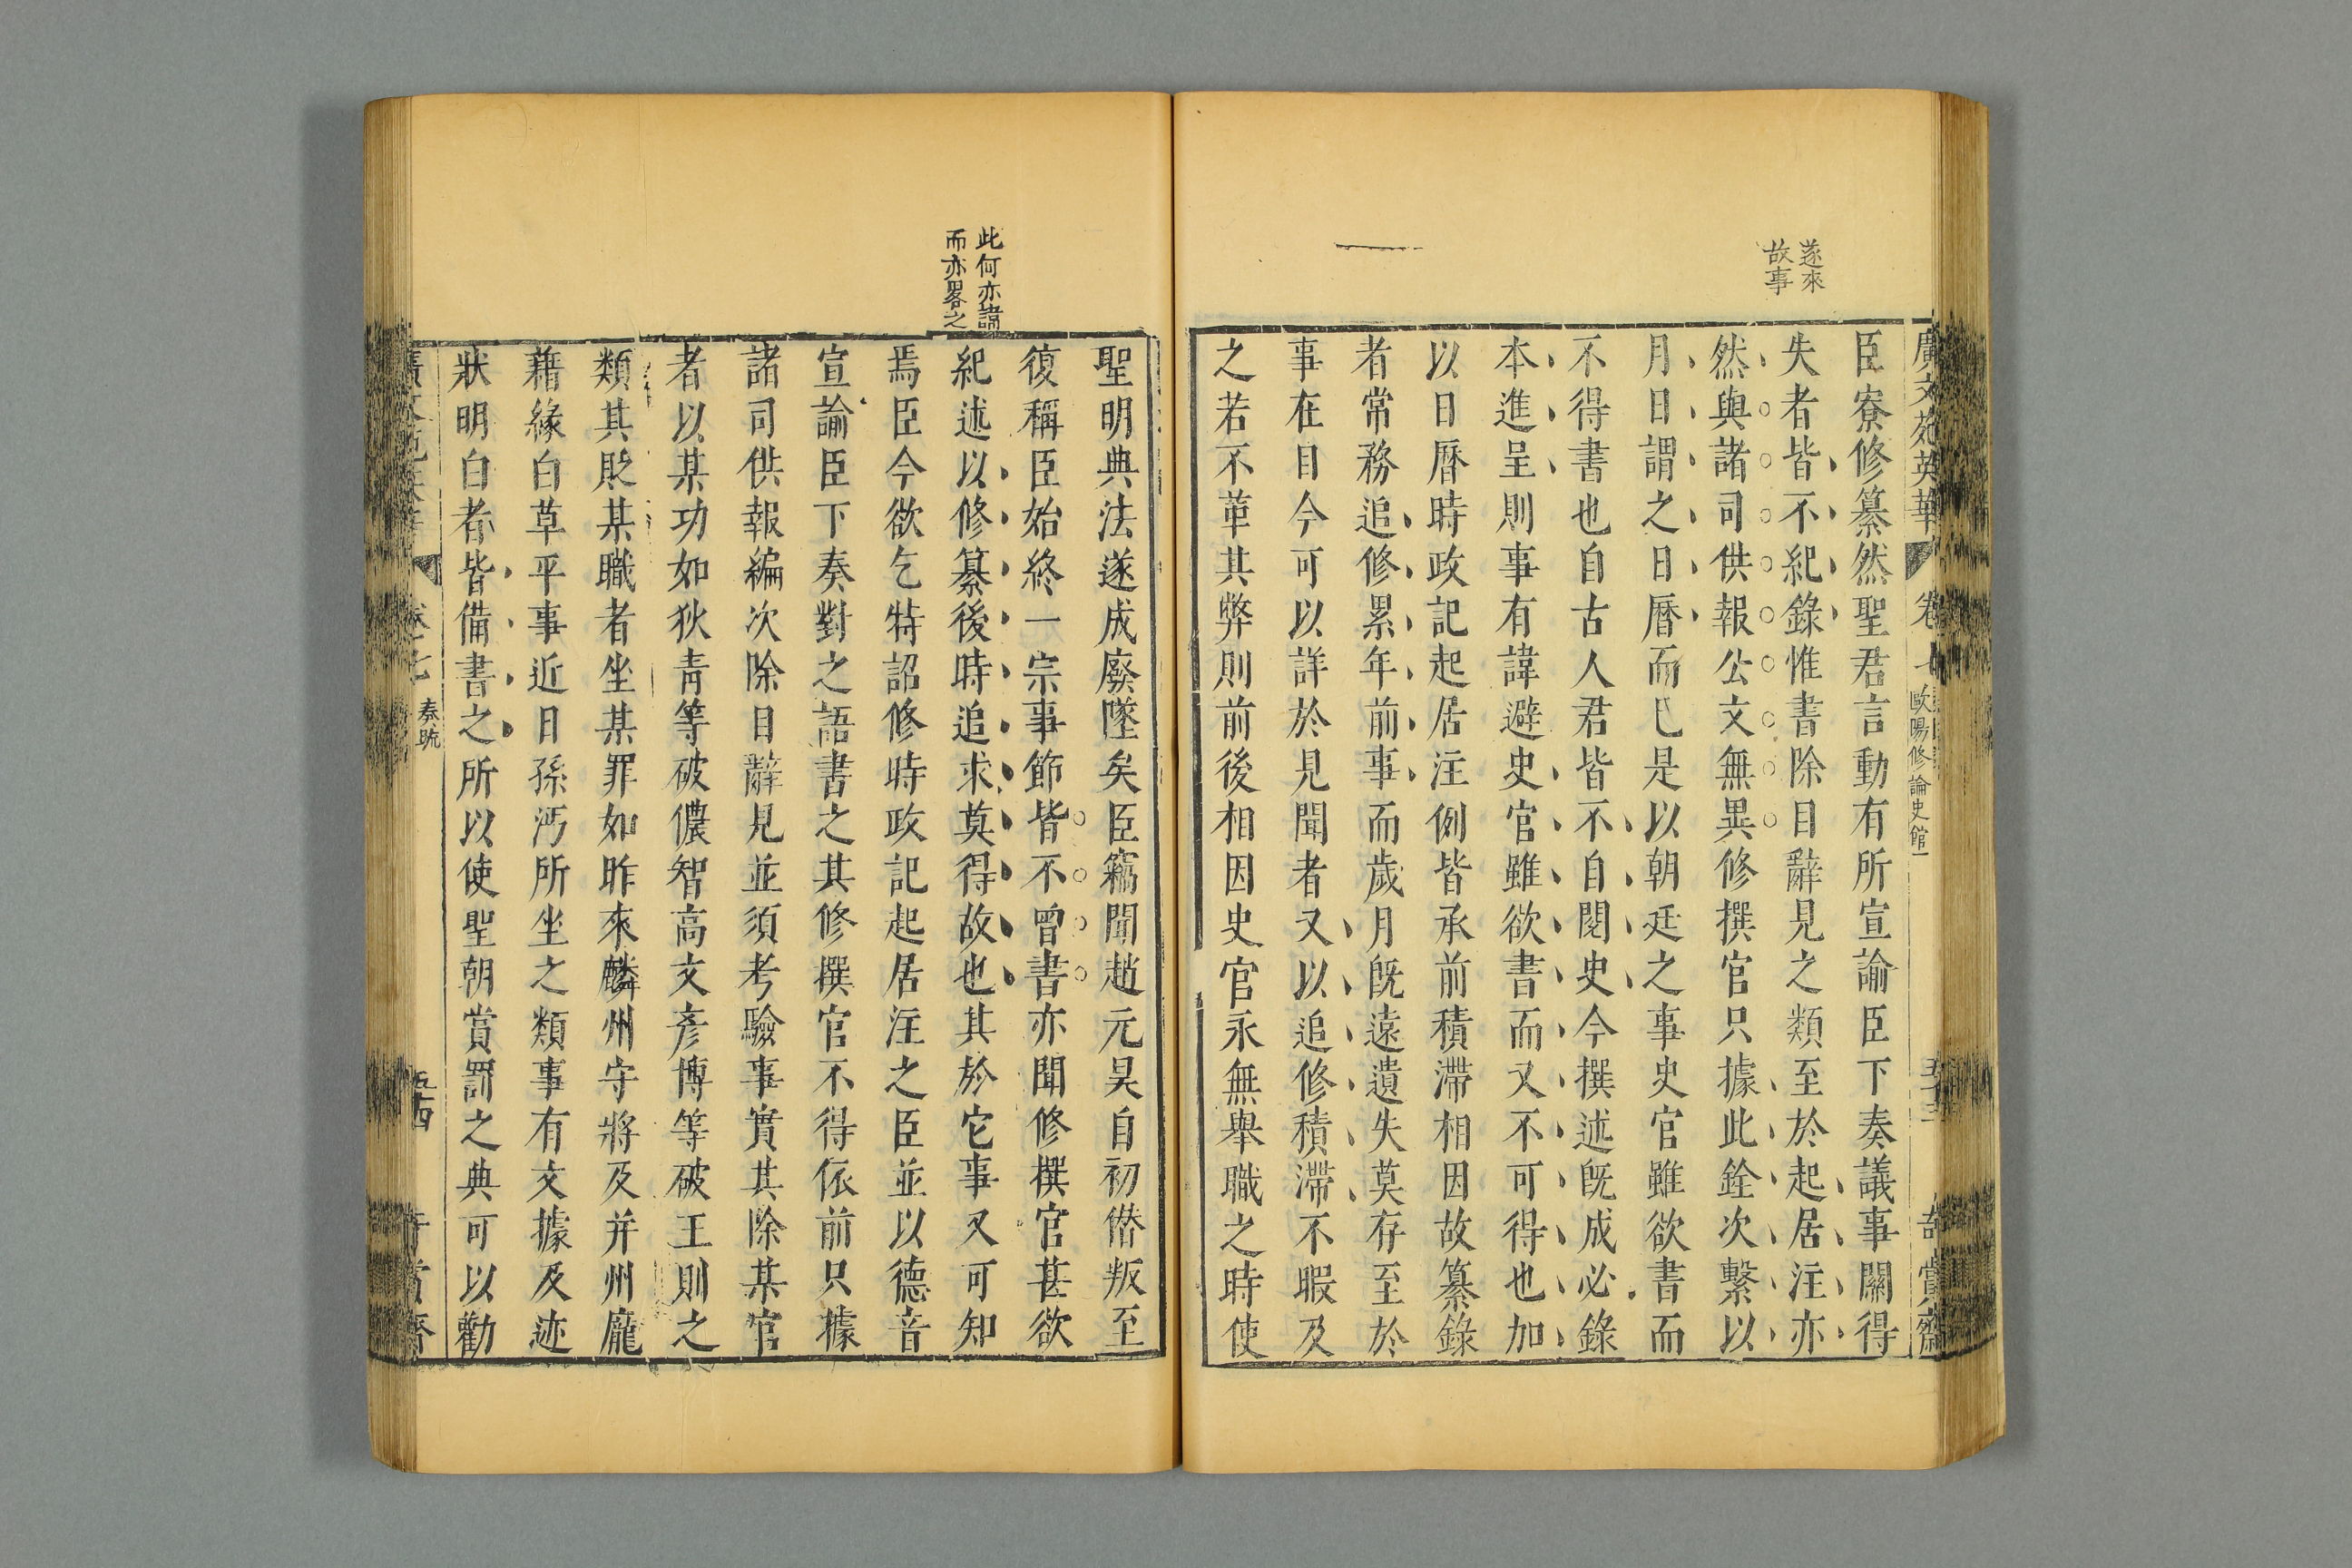 遂來
故事
廣文苑英華
卷
歐陽修論史館一
賞齋
臣寮修纂然聖君言動有所宣諭臣下奏議事關得
失者皆不紀錄惟書除目辭見之類至於起居注亦
然與諸司供報公文無異修撰官只據此銓次繫以
月日謂之日曆而已是以朝廷之事史官雖欲書而
不得書也自古人君皆不自閱史今撰述旣成必錄
本進呈則事有諱避史官雖欲書而又不可得也加
以日曆時政記起居注例皆承前積滯相因故纂錄
者常務追修累年前事而歲月旣遠遺失莫存至於
事在目今可以詳於見聞者又以追修積滯不暇及
之若不革其弊則前後相因史官永無舉職之時使
此何亦諱
而亦畧之
聖明典法遂成廢墜矣臣竊聞趙元昊自初僭叛至
復稱臣始終一宗事節皆不曾書亦聞修撰官甚欲
紀述以修纂後時追求莫得故也其於它事又可知
焉臣今欲乞特詔修時政記起居注之臣並以德音
宣諭臣下奏對之語書之其修撰官不得依前只據
諸司供報編次除目辭見並須考驗事實其除某官
者以某功如狄靑等破儂智高文彥博等破王則之
類其貶某職者坐某罪如昨來麟州守將及并州龐
藉緣白草平事近日孫沔所坐之類事有文據及迹
狀明白者皆備書之所以使聖朝賞罰之典可以勸
奏疏